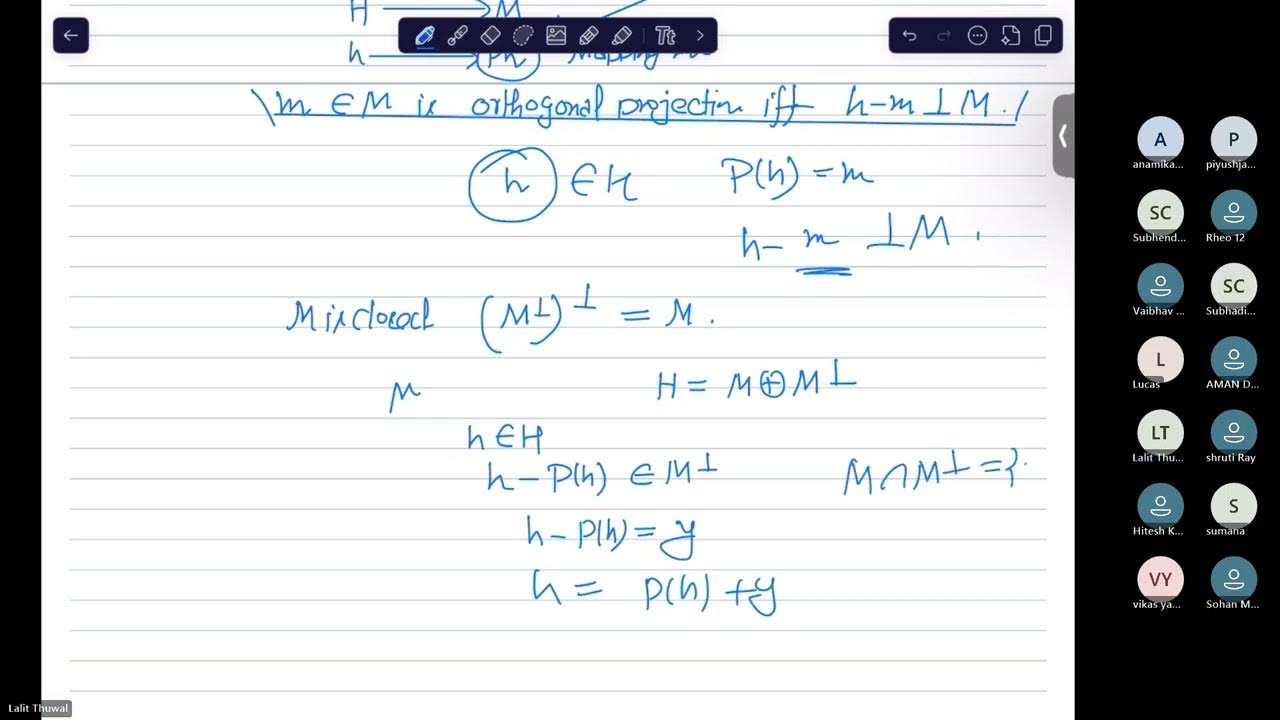 H ⟶ M
h ⟶ Ph Mapping
m ∈ M is orthogonal projection iff h-m ⊥ M.
h ∈ H P(h) = m
h- m ⊥ M .
M is closed (M⊥)⊥ = M .
M H = M ⊕ M⊥
h ∈ H
h - P(h) ∈ M⊥ M ∩ M⊥ = {
h - P(h) = y
h = P(h) + y
Tt
A P
anamika... piyushja...
SC
Subhend... Rheo 12
SC
Vaibhav ... Subhadi...
L
Lucas AMAN D...
LT
Lalit Thu... shruti Ray
S
Hitesh K... sumana
VY
vikas ya... Sohan M...
Lalit Thuwal